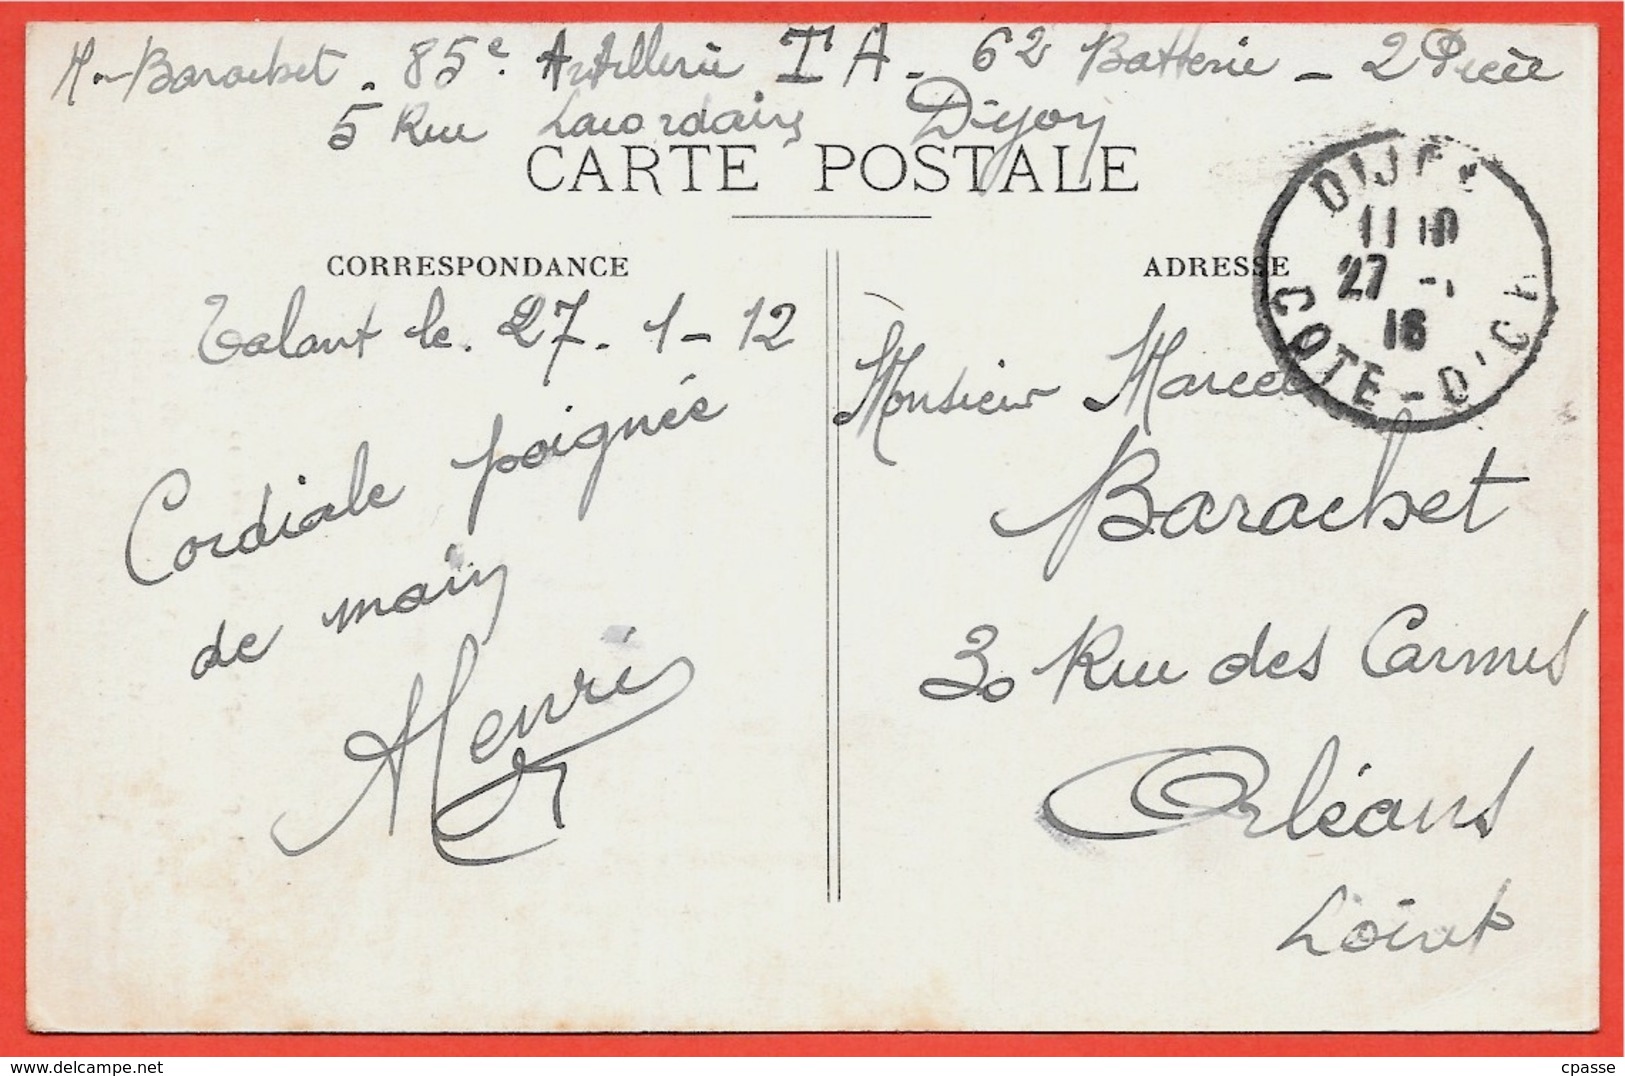 Hri Barachet. 85e. Artillerie T A. 62 Batterie - 2 Pièce
5 Rue Lacordaire Dijon
CARTE POSTALE
CORRESPONDANCE
Talant le. 27. 1 - 12
Cordiale poignée
de main
Henri
ADRESSE
Monsieur Marcel
Barachet
30 Rue des Carmes
Orléans
Loiret
DIJON
11 10
27 - 1
16
COTE - D'OR
cpasse
www.delcampe.net